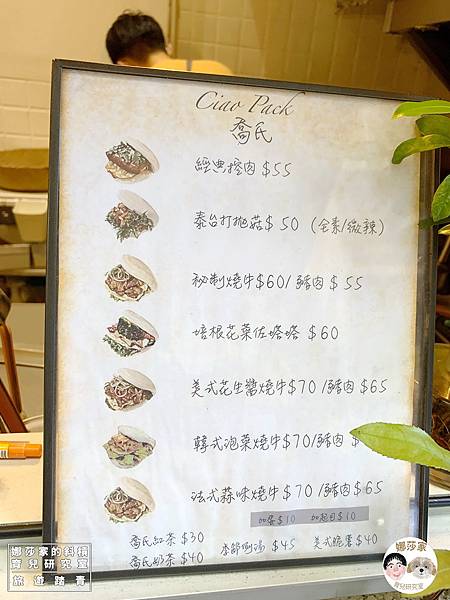 Ciao Pack
喬氏
經典控肉 $55
泰台打拋菇 $50 (全素/微辣)
秘制燒牛 $60/豬肉 $55
培根花菜佐塔塔 $60
美式花生醬燒牛 $70/豬肉 $65
韓式泡菜燒牛 $70/豬肉 $
法式蒜味燒牛 $70/豬肉 $65
加蛋 $10 加起司 $10
喬氏紅茶 $30
喬氏奶茶 $40
季節例湯 $45
美式脆薯 $40
娜莎家的斜槓
育兒研究室
旅遊踏青
娜莎家
育兒研究室